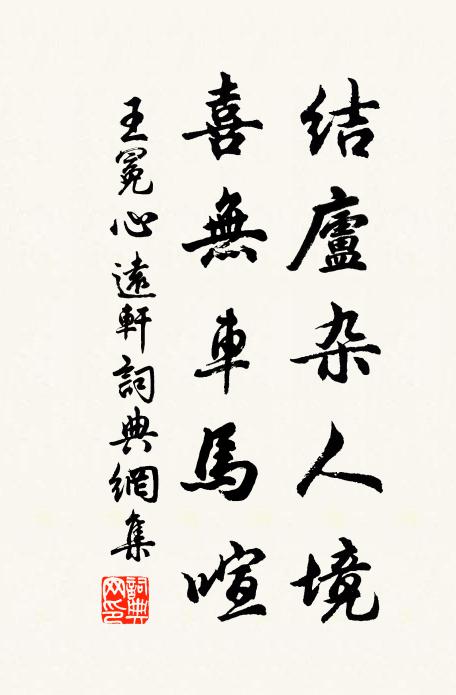 结廬杂人境
喜無車馬喧
王冕心遠軒詞典網集
詞典网印